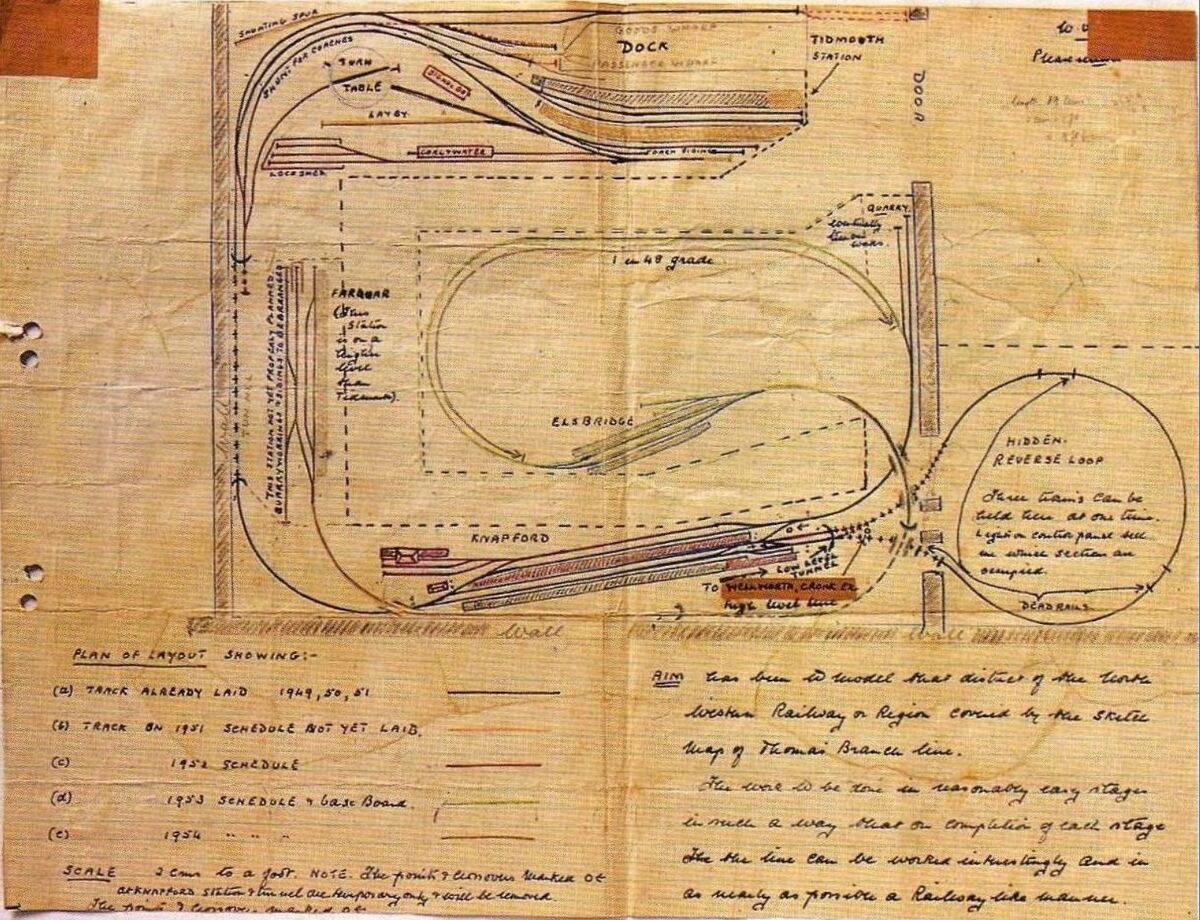 SHUNTING SPUR
SHUNT FOR COACHES
GOODS WHARF
DOCK
PASSENGER WHARF
TIDMOUTH
STATION
Please
TURN
TABLE
SIGNAL BOX
DOOR
LAYBY
COAL & WATER
COACH SIDINGS
LOCO SHED
QUARRY
eventually
1 in 48 grade
FARQUAR
(This
Station
is on a
higher
level
than
Tidmouth).
THIS STATION NOT YET PROPERLY PLANNED
QUARRY WORKINGS & SIDINGS TO BE ARRANGED
wall
TUNNEL
ELSBRIDGE
HIDDEN
REVERSE LOOP
Three trains can be
held here at one time.
Light on control panel tell
in which section are
occupied.
DEAD RAILS
KNAPFORD
LOW LEVEL
TUNNEL
TO WELLWORTH, CRONK Etc
high level line
wall
wall
PLAN OF LAYOUT SHOWING:-
(a) TRACK ALREADY LAID 1949, 50, 51
(b) TRACK ON 1951 SCHEDULE NOT YET LAID.
(c) 1952 SCHEDULE
(d) 1953 SCHEDULE & base Board.
(e) 1954 " " "
SCALE 2 cms to a foot. NOTE. The points & crossovers marked OE
AT KNAPFORD Station & tunnel are temporary only & will be removed
The points & crossovers marked OE
AIM has been to model that district of the North
Western Railway or Region covered by the sketch
Map of Thomas' Branch line.
The work to be done in reasonably easy stages
in such a way that on completion of each stage
The the line can be worked interestingly and in
as nearly as possible a Railway like manner.